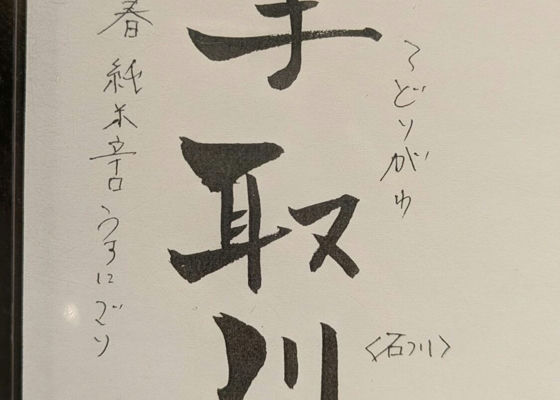 てどりがわ
〈石川〉
手取川
春 純米辛口 うすにごり